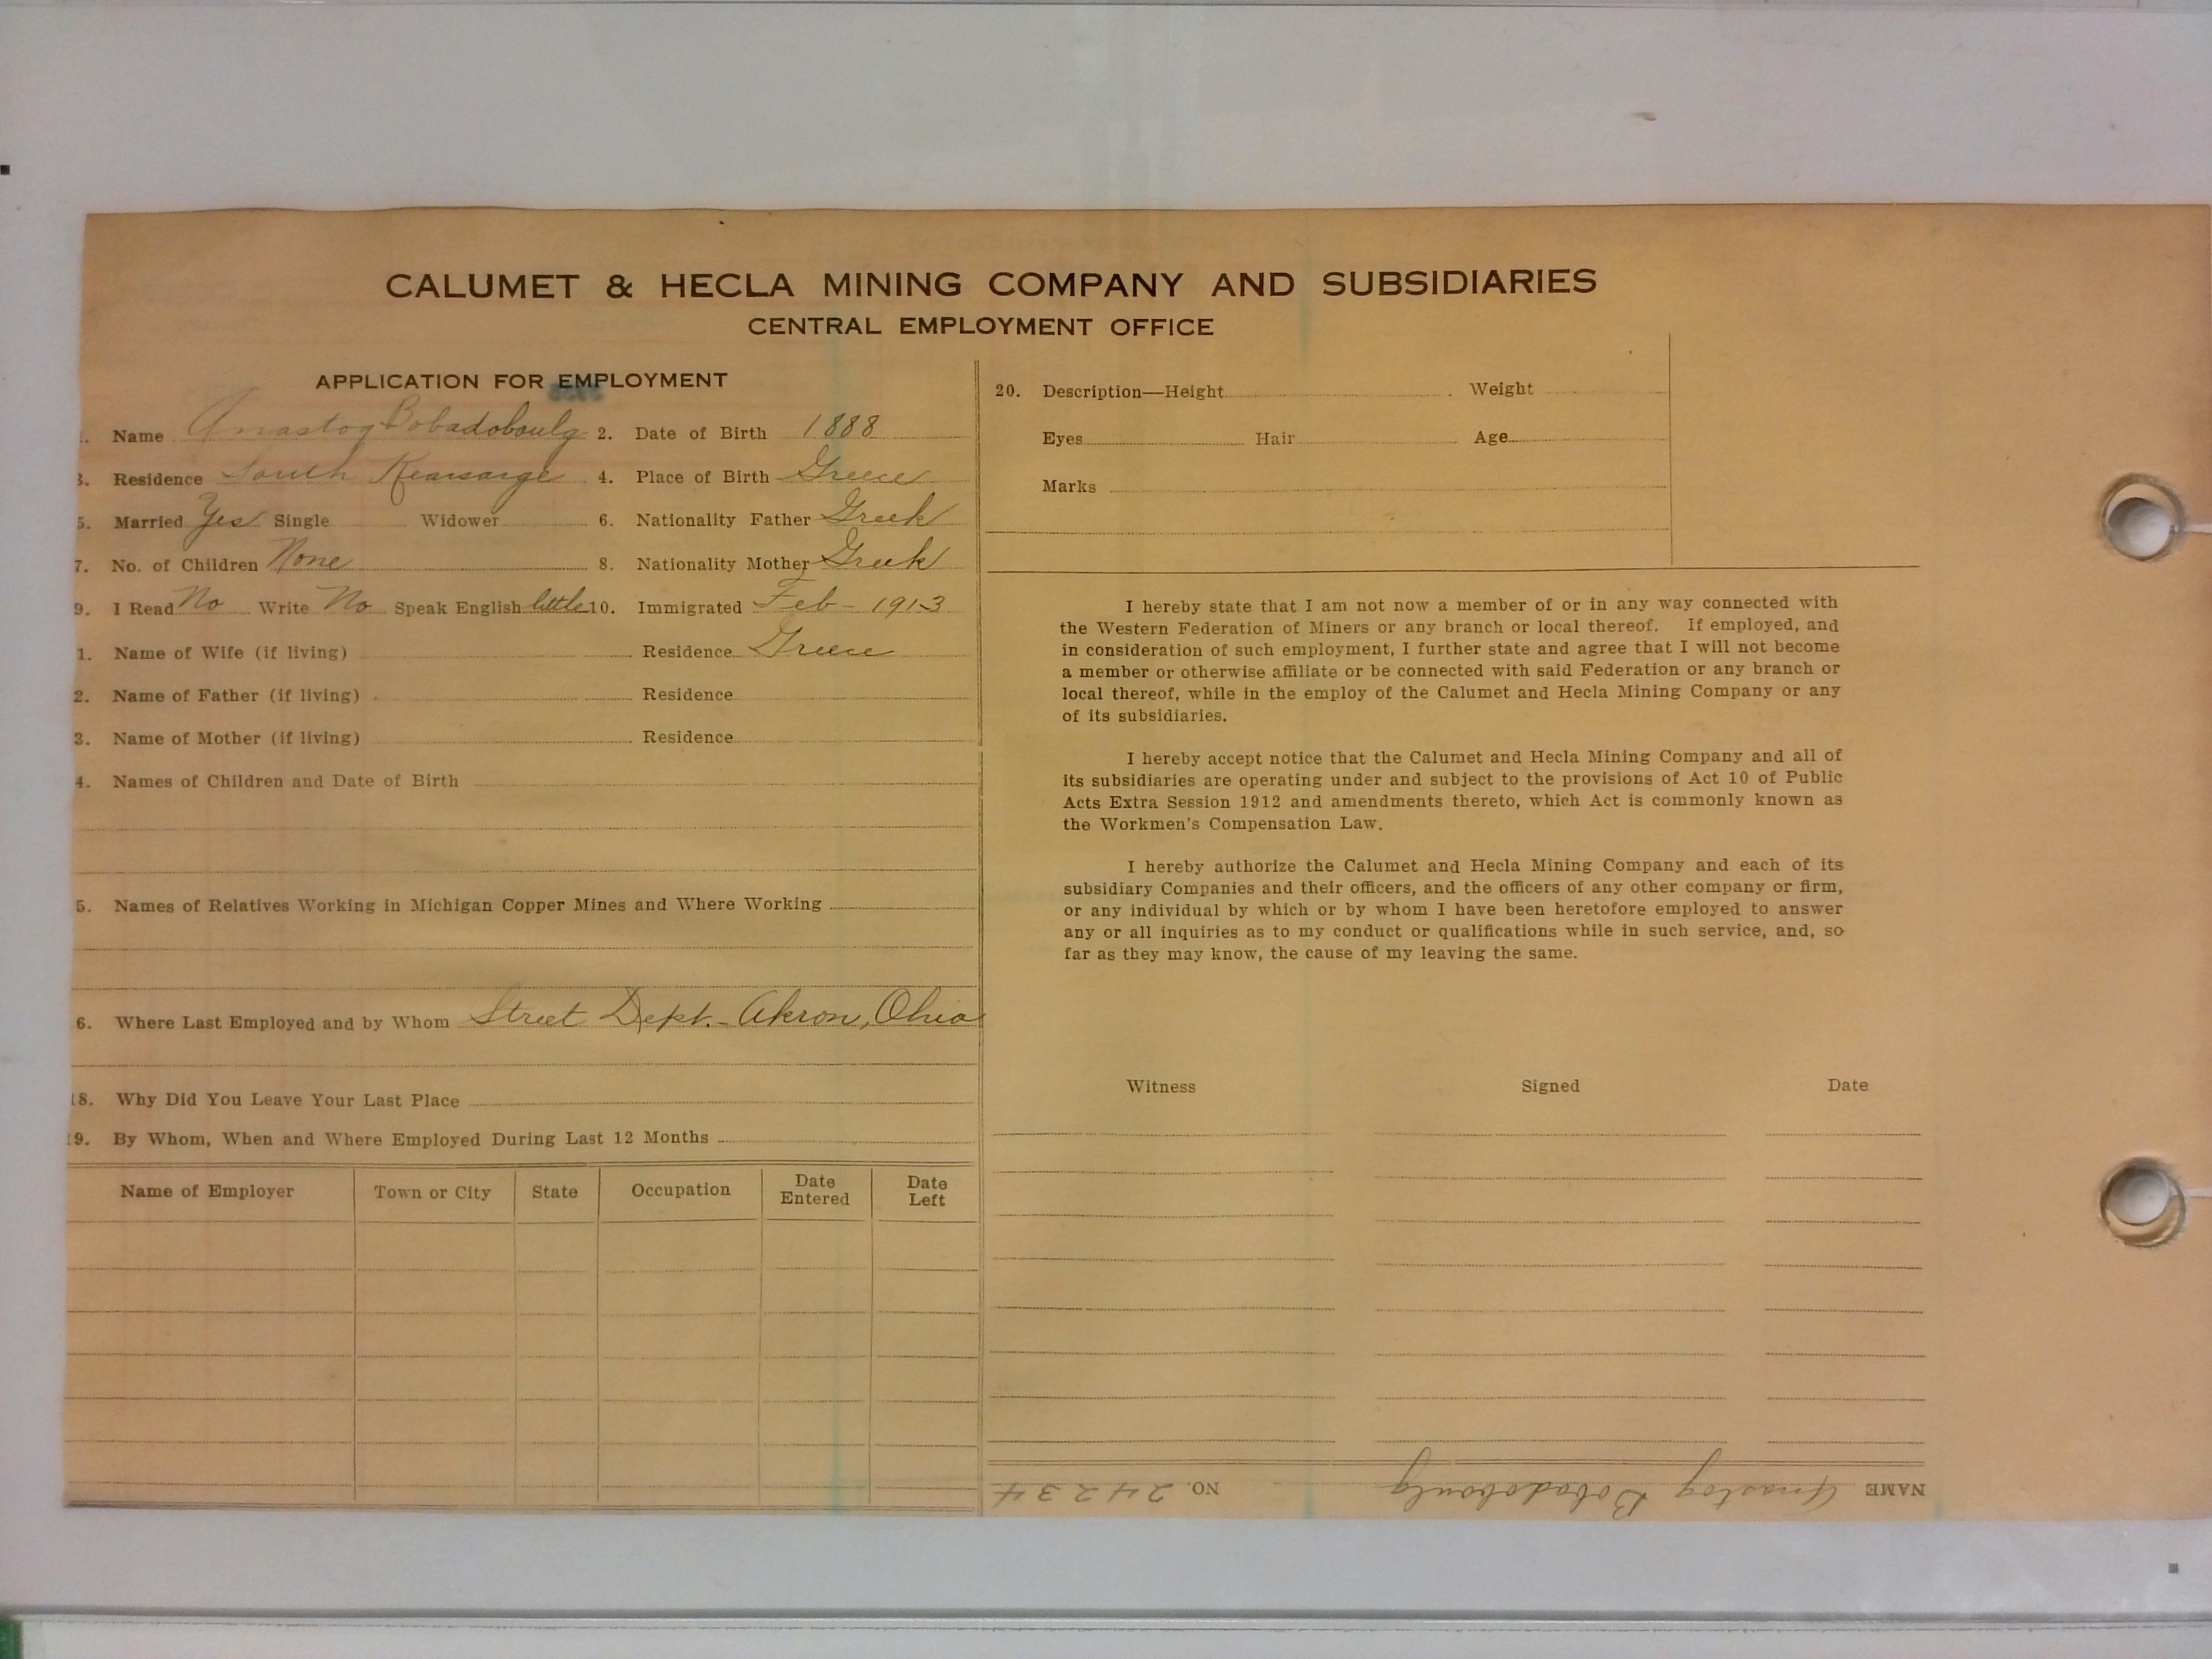 CALUMET & HECLA MINING COMPANY AND SUBSIDIARIES
CENTRAL EMPLOYMENT OFFICE
APPLICATION FOR EMPLOYMENT
Name Anastog Bobadoboulg 2. Date of Birth 1888
3. Residence South Kearsarge 4. Place of Birth Greece
5. Married Yes Single Widower 6. Nationality Father Greek
7. No. of Children None 8. Nationality Mother Greek
9. I Read No Write No Speak English little 10. Immigrated Feb - 1913
1. Name of Wife (if living) Residence Greece
2. Name of Father (if living) Residence
3. Name of Mother (if living) Residence
4. Names of Children and Date of Birth
5. Names of Relatives Working in Michigan Copper Mines and Where Working
6. Where Last Employed and by Whom Street Dept. - Akron, Ohio
18. Why Did You Leave Your Last Place
19. By Whom, When and Where Employed During Last 12 Months
Name of Employer Town or City State Occupation Date Entered Date Left
20. Description—Height Weight
Eyes Hair Age
Marks
I hereby state that I am not now a member of or in any way connected with
the Western Federation of Miners or any branch or local thereof. If employed, and
in consideration of such employment, I further state and agree that I will not become
a member or otherwise affiliate or be connected with said Federation or any branch or
local thereof, while in the employ of the Calumet and Hecla Mining Company or any
of its subsidiaries.
I hereby accept notice that the Calumet and Hecla Mining Company and all of
its subsidiaries are operating under and subject to the provisions of Act 10 of Public
Acts Extra Session 1912 and amendments thereto, which Act is commonly known as
the Workmen's Compensation Law.
I hereby authorize the Calumet and Hecla Mining Company and each of its
subsidiary Companies and their officers, and the officers of any other company or firm,
or any individual by which or by whom I have been heretofore employed to answer
any or all inquiries as to my conduct or qualifications while in such service, and, so
far as they may know, the cause of my leaving the same.
Witness Signed Date
NAME Anastog Bobadoboulg NO. 24234